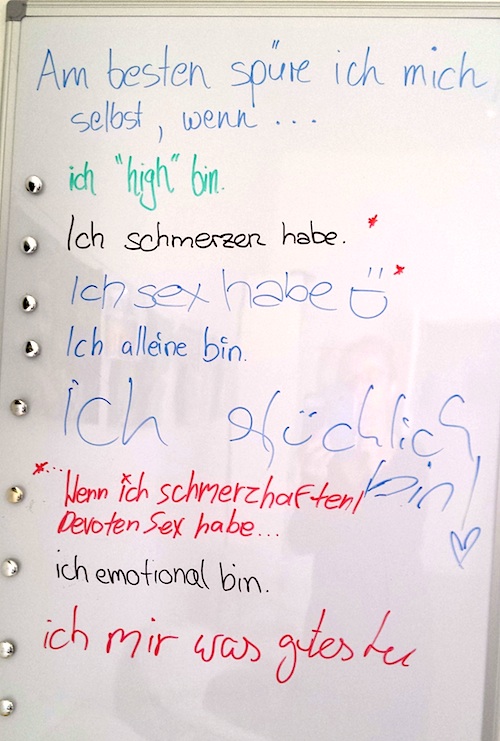 Am besten spüre ich mich
selbst, wenn ...
ich "high" bin.
Ich schmerzen habe. *
Ich sex habe :D *
Ich alleine bin.
ich glücklich
bin!
*... Wenn ich schmerzhaften/
Devoten Sex habe...
ich emotional bin.
ich mir was gutes tu